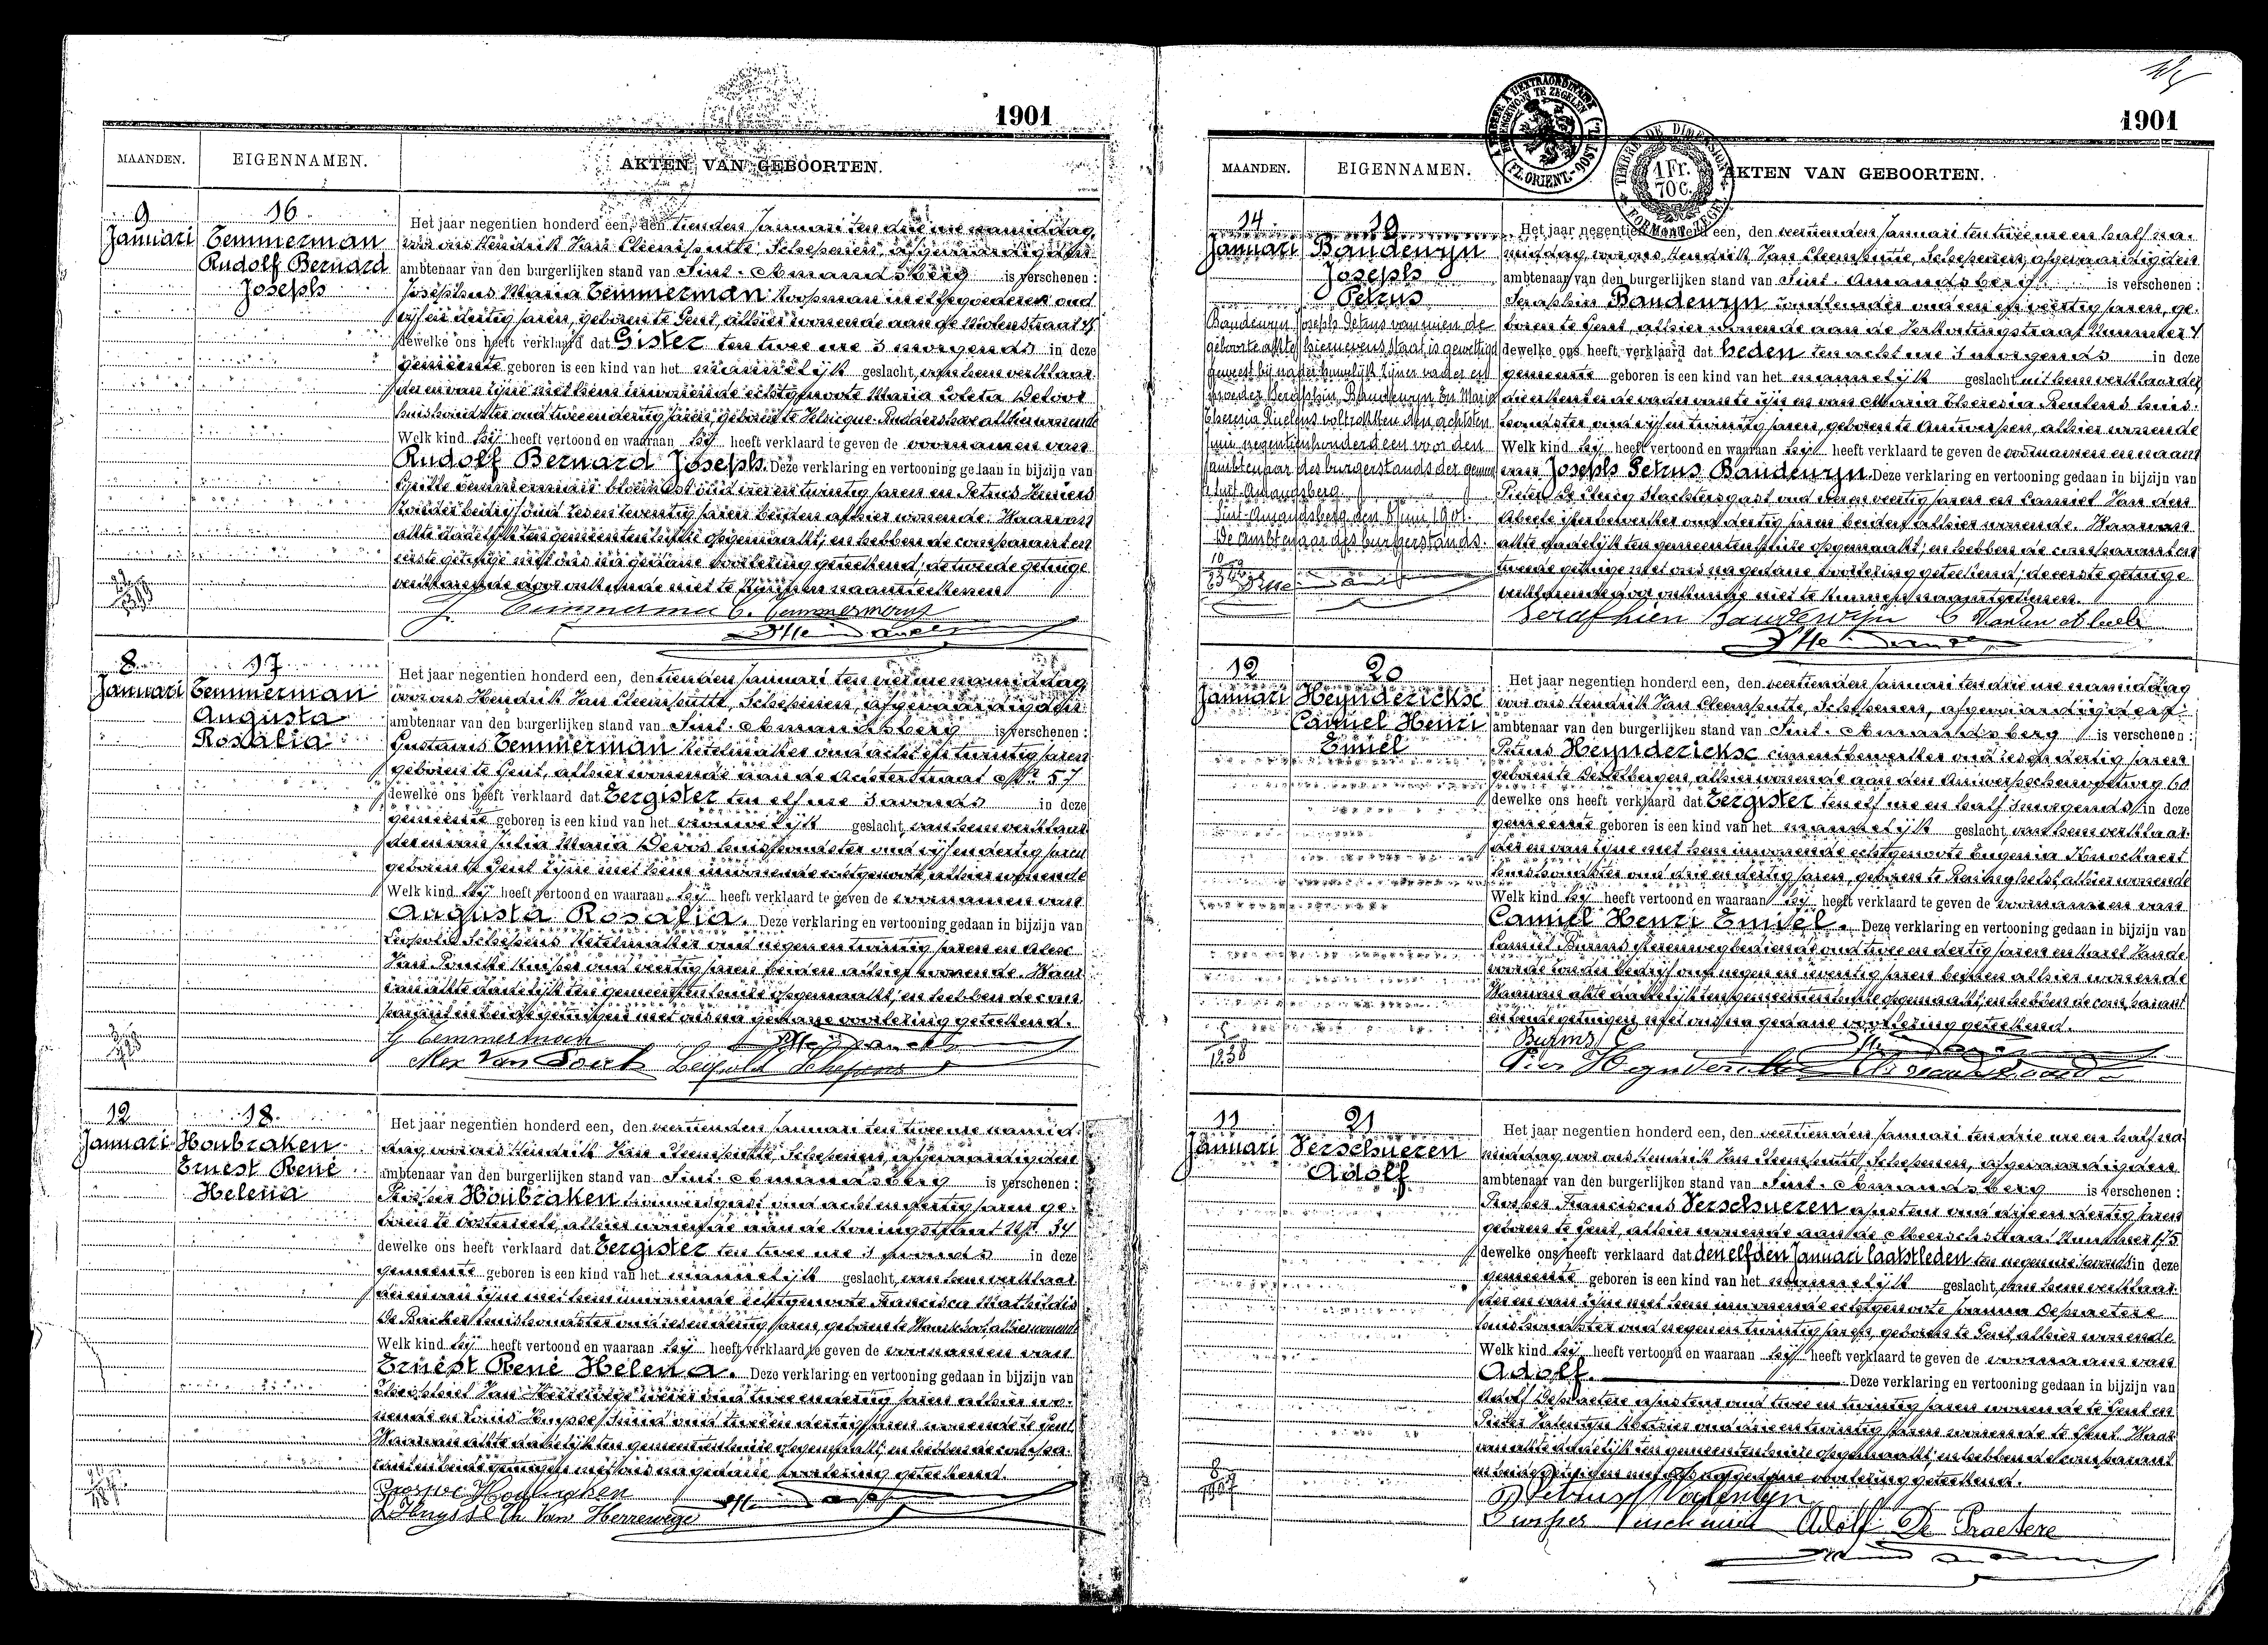 1901
MAANDEN. EIGENNAMEN. AKTEN VAN GEBOORTEN.
9 Januari
16
Temmerman
Rudolf Bernard
Joseph
Het jaar negentien honderd een, den tienden Januari ten drie ure namiddag,
voor ons Hendrik Van Cleemputte, Schepenen, afgevaardigden
ambtenaar van den burgerlijken stand van Sint-Amandsberg is verschenen:
Josephus Maria Temmerman koopman in oud
vijf en dertig jaren, geboren te Gent, alhier wonende aan de Molenstraat
dewelke ons heeft verklaard dat Gister ten twee ure 's morgends in deze
gemeente geboren is een kind van het mannelijk geslacht, van hem verklaar-
der en van zijne met hem inwonende echtgenoote Maria Coleta
huishoudster oud twee en dertig jaren, geboren te alhier wonende
Welk kind hij heeft vertoond en waaraan hij heeft verklaard te geven de voornamen van
Rudolf Bernard Joseph. Deze verklaring en vertooning gedaan in bijzijn van
Temmerman bloemist oud en twintig jaren en Petrus
zonder bedrijf oud jaren beiden alhier wonende. Waarvan
akte dadelijk ten gemeentenhuize opgemaakt; en hebben de comparant en
eerste getuige met ons na gedane voorlezing geteekend; de tweede getuige
verklarende door onkunde niet te kunnen naamteekenen
J. Temmerman C. Temmerman
8 Januari
17
Temmerman
Augusta
Rosalia
Het jaar negentien honderd een, den tienden Januari ten vier ure namiddag
voor ons Hendrik Van Cleemputte, Schepenen, afgevaardigden
ambtenaar van den burgerlijken stand van Sint-Amandsberg is verschenen:
Gustavus Temmerman ketelmaker oud acht en twintig jaren
geboren te Gent, alhier wonende aan de straat Nr 57
dewelke ons heeft verklaard dat Eergister ten elf ure 's avonds in deze
gemeente geboren is een kind van het vrouwelijk geslacht, van hem verklaar-
der en van Julia Maria Devos huishoudster oud vijf en dertig jaren
geboren te Gent zijne met hem inwonende echtgenoote, alhier wonende
Welk kind hij heeft vertoond en waaraan hij heeft verklaard te geven de voornamen van
Augusta Rosalia. Deze verklaring en vertooning gedaan in bijzijn van
Leopold Schepens ketelmaker oud negen en twintig jaren en Alex
Van kuiper oud veertig jaren beiden alhier wonende. Waar-
van akte dadelijk ten gemeentenhuize opgemaakt; en hebben de com-
parant en beide getuigen met ons na gedane voorlezing geteekend.
G Temmerman
Alex Van Leopold Schepens
12 Januari
18
Houbraken
Ernest René
Helena
Het jaar negentien honderd een, den veertienden Januari ten twee ure namid-
dag voor ons Hendrik Van Cleemputte, Schepenen, afgevaardigden
ambtenaar van den burgerlijken stand van Sint-Amandsberg is verschenen:
Prosper Houbraken oud acht en dertig jaren ge-
boren te Oosterzele, alhier wonende aan de Koningstraat Nr 34
dewelke ons heeft verklaard dat Eergister ten twee ure 's avonds in deze
gemeente geboren is een kind van het mannelijk geslacht, van hem verklaar-
der en van zijne met hem inwonende echtgenoote Francisca Mathildis
De Backer huishoudster oud zes en dertig jaren geboren te alhier wonende
Welk kind hij heeft vertoond en waaraan hij heeft verklaard te geven de voornamen van
Ernest René Helena. Deze verklaring en vertooning gedaan in bijzijn van
Theophiel Van Herrewege oud twee en dertig jaren alhier wo-
nende en Louis Huysse smid oud twee en dertig jaren wonende te Gent
Waarvan akte dadelijk ten gemeentenhuize opgemaakt; en hebben de compa-
rant en beide getuigen met ons na gedane voorlezing geteekend.
Prosper Houbraken
L Huysse Th. Van Herrewege
1901
MAANDEN. EIGENNAMEN. AKTEN VAN GEBOORTEN.
TIMBRE DE DIMENSION
1 Fr. 70 c.
FORMAAT ZEGEL
14 Januari
19
Baudewyn
Joseph
Petrus
Baudewyn Joseph Petrus van wien de
geboorte akte hiernevens staat is gewettigd
geweest bij het huwelijk zijner vader en
moeder Seraphin Baudewyn en Maria
Theresia Ruetens voltrokken den achtsten
Juni negentienhonderd een voor den
ambtenaar des burgerstands der gemeen
te Sint-Amandsberg
Sint-Amandsberg den 8 Juni 1901.
De ambtenaar des burgerstands.
Het jaar negentien honderd een, den veertienden Januari ten twee ure en half na-
middag, voor ons Hendrik Van Cleemputte, Schepenen, afgevaardigden
ambtenaar van den burgerlijken stand van Sint-Amandsberg is verschenen:
Seraphin Baudewyn oud een en veertig jaren, ge-
boren te Gent, alhier wonende aan de straat Nummer 4
dewelke ons heeft verklaard dat heden ten acht ure 's morgends in deze
gemeente geboren is een kind van het mannelijk geslacht uit hem verklaarder
die erkent er de vader van te zijn en van Maria Theresia Ruetens huis-
houdster oud vijf en twintig jaren, geboren te Antwerpen, alhier wonende
Welk kind hij heeft vertoond en waaraan hij heeft verklaard te geven de voornamen en naam
van Joseph Petrus Baudewyn. Deze verklaring en vertooning gedaan in bijzijn van
Pieter De Clercq slachtersgast oud veertig jaren en Camiel Van den
Abeele ijzerbewerker oud dertig jaren beiden alhier wonende. Waarvan
akte dadelijk ten gemeentenhuize opgemaakt; en hebben de comparant en
tweede getuige met ons na gedane voorlezing geteekend; de eerste getuige
verklarende door onkunde niet te kunnen naamteekenen.
Serafhien Baudewijn C Van den Abeele
12 Januari
20
Heynderickse
Camiel Henri
Emiel
Het jaar negentien honderd een, den veertienden Januari ten drie ure namiddag
voor ons Hendrik Van Cleemputte, Schepenen, afgevaardigden
ambtenaar van den burgerlijken stand van Sint-Amandsberg is verschenen:
Petrus Heynderickse cimentbewerker oud zes en dertig jaren
geboren te Destelbergen, alhier wonende aan den Antwerpschensteenweg 60
dewelke ons heeft verklaard dat Eergister ten elf ure en half 's morgends in deze
gemeente geboren is een kind van het mannelijk geslacht van hem verklaar-
der en van zijne met hem inwonende echtgenoote Eugenia Knockaert
huishoudster oud drie en dertig jaren, geboren te alhier wonende
Welk kind hij heeft vertoond en waaraan hij heeft verklaard te geven de voornamen van
Camiel Henri Emiel. Deze verklaring en vertooning gedaan in bijzijn van
Camiel Burms oud twee en dertig jaren en Karel Vande
zonder bedrijf oud negen en zeventig jaren beiden alhier wonende
Waarvan akte dadelijk ten gemeentenhuize opgemaakt; en hebben de comparant
en beide getuigen met ons na gedane voorlezing geteekend.
Burms
11 Januari
21
Verschueren
Adolf
Het jaar negentien honderd een, den veertienden Januari ten drie ure en half na-
middag voor ons Hendrik Van Cleemputte, Schepenen, afgevaardigden
ambtenaar van den burgerlijken stand van Sint-Amandsberg is verschenen:
Prosper Franciscus Verschueren ajusteur oud vijf en dertig jaren
geboren te Gent, alhier wonende aan de Meerschstraat Nummer 175
dewelke ons heeft verklaard dat den elfden Januari laatstleden ten negen ure 's avonds in deze
gemeente geboren is een kind van het mannelijk geslacht, van hem verklaar-
der en van zijne met hem inwonende echtgenoote Joanna Depraetere
huishoudster oud negen en twintig jaren, geboren te Gent alhier wonende
Welk kind hij heeft vertoond en waaraan hij heeft verklaard te geven de voornaam van
Adolf. Deze verklaring en vertooning gedaan in bijzijn van
Adolf Depraetere ajusteur oud twee en twintig jaren wonende te Gent en
Pieter Valentyn oud drie en twintig jaren wonende te Gent. Waar-
van akte dadelijk ten gemeentenhuize opgemaakt; en hebben de comparant
en beide getuigen met ons na gedane voorlezing geteekend.
Petrus Valentyn
Prosper Verschueren Adolf De Praetere